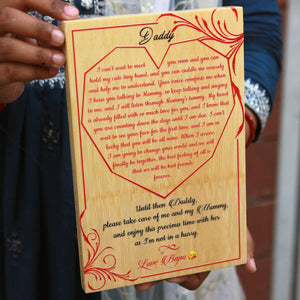 Daddy
I can't wait to meet you soon and you can
hold my cute tiny hand, and you can cuddle me securely
and help me to understand. Your voice comforts me when
I hear you talking to Mummy, so keep talking and singing
to me, and I will listen through Mummy's tummy. My heart
is already filled with so much love for you, and I know that
you are counting down the days until I am due. I can't
wait to see your face for the first time, and I am so
lucky that you will be all mine. When I arrive,
I am going to change your world and we will
finally be together, the best feeling of all is
that we will be best friends
forever.
Until then Daddy,
please take care of me and my Mummy,
and enjoy this precious time with her
as I'm not in a hurry.
Love Bapu